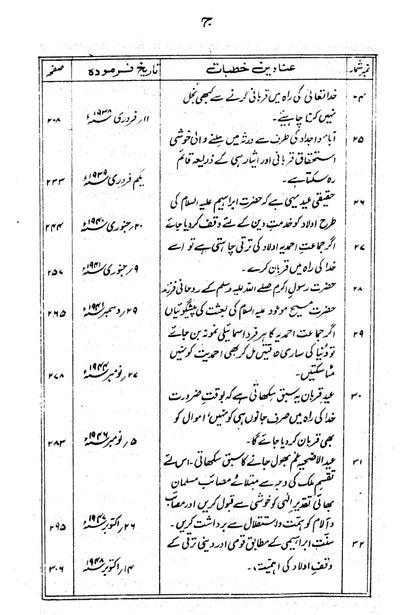 ج
نمبر شمار عناوین خطبات تاریخ فرمودہ صفحہ
۲۴ خدا تعالیٰ کی راہ میں قربانی کرنے سے کبھی بخل
نہیں کرنا چاہیئے۔ ۱۱؍ فروری ۱۹۳۸ء ۲۰۸
۲۵ آباء و اجداد کی طرف سے ورثہ میں ملنے والی خوشی
استحقاق قربانی اور ایثار ہی کے ذریعہ قائم
رہ سکتا ہے۔ یکم فروری ۱۹۳۹ء ۲۳۳
۲۶ حقیقی عید یہی ہے کہ حضرت ابراہیم علیہ السلام کی
طرح اولاد کو خدمتِ دین کے لئے وقف کر دیا جائے ۲۰؍ جنوری ۱۹۴۰ء ۲۴۴
۲۷ اگر جماعت احمدیہ اولاد کی ترقی چاہتی ہے تو اسے
خدا کی راہ میں قربان کرے۔ ۹؍ جنوری ۱۹۴۱ء ۲۵۷
۲۸ حضرت رسولِ اکرم صلے اللہ علیہ وسلم کے روحانی فرزند
حضرت مسیح موعود علیہ السلام کی بعثت کی پیشگوئیاں ۲۹؍ دسمبر ۱۹۴۱ء ۲۶۵
۲۹ اگر جماعت احمدیہ کا ہر فرد اسماعیلی نمونہ بن جائے
تو دُنیا کی ساری طاقتیں مل کر بھی احمدیت کو نہیں
مٹا سکتیں۔ ۲۷؍ نومبر ۱۹۴۴ء ۲۷۸
۳۰ عید قربان یہ سبق سکھاتی ہے کہ بوقتِ ضرورت
خدا کی راہ میں صرف جانوں ہی کو نہیں، اموال کو
بھی قربان کر دیا جائے گا۔ ۵؍ نومبر ۱۹۴۶ء ۲۸۳
۳۱ عید الاضحیہ غم بھول جانے کا سبق سکھاتی۔ اس لئے
تقسیم ملک کی وجہ سے مبتلائے مصائب مسلمان
بھائی تقدیر الٰہی کو خوشی سے قبول کریں اور مصائب
و آلام کو ہمت و استقلال سے برداشت کریں۔ ۲۶؍ اکتوبر ۱۹۴۷ء ۲۹۵
۳۲ سنّتِ ابراہیمی کے مطابق قومی اور دینی ترقی کے لئے
وقفِ اولاد کی اہمیت۔ ۱۴؍ اکتوبر ۱۹۴۸ء ۳۰۶